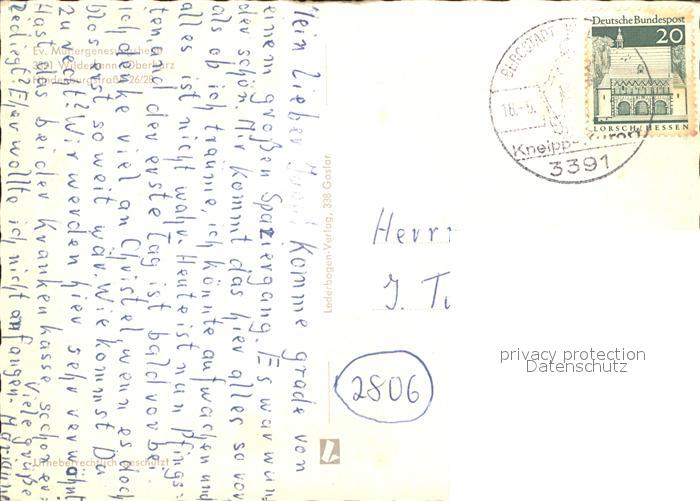 Ev. Müttergenesungsheim
3391 Wildemann/Oberharz
Hindenburgstraße 26/28
Mein lieber komme grade von
einem großen Spaziergang. Es war wun
der schön. Mir kommt das hier alles so vor
als ob ich träume, ich könnte aufwachen und
alles ist nicht wahr. Heute ist nun Pfings-
ten, und der erste Tag ist bald vorbei.
ich denke viel an Christel, wenn es doch
blos erst so weit wär. Wie kommst Du
zu recht? Wir werden hier sehr verwöhnt
Hast alles bei der Krankenkasse schon er-
ledigt? Eher wollte ich nicht anfangen.
viele Grüße
Urheberrechtlich geschützt
Lederbogen-Verlag, 338 Goslar
BERGSTADT
16.-5.
Kneipp-Kurort
3391
Deutsche Bundespost
20
LORSCH/HESSEN
Herrn
J.
2806
privacy protection
Datenschutz